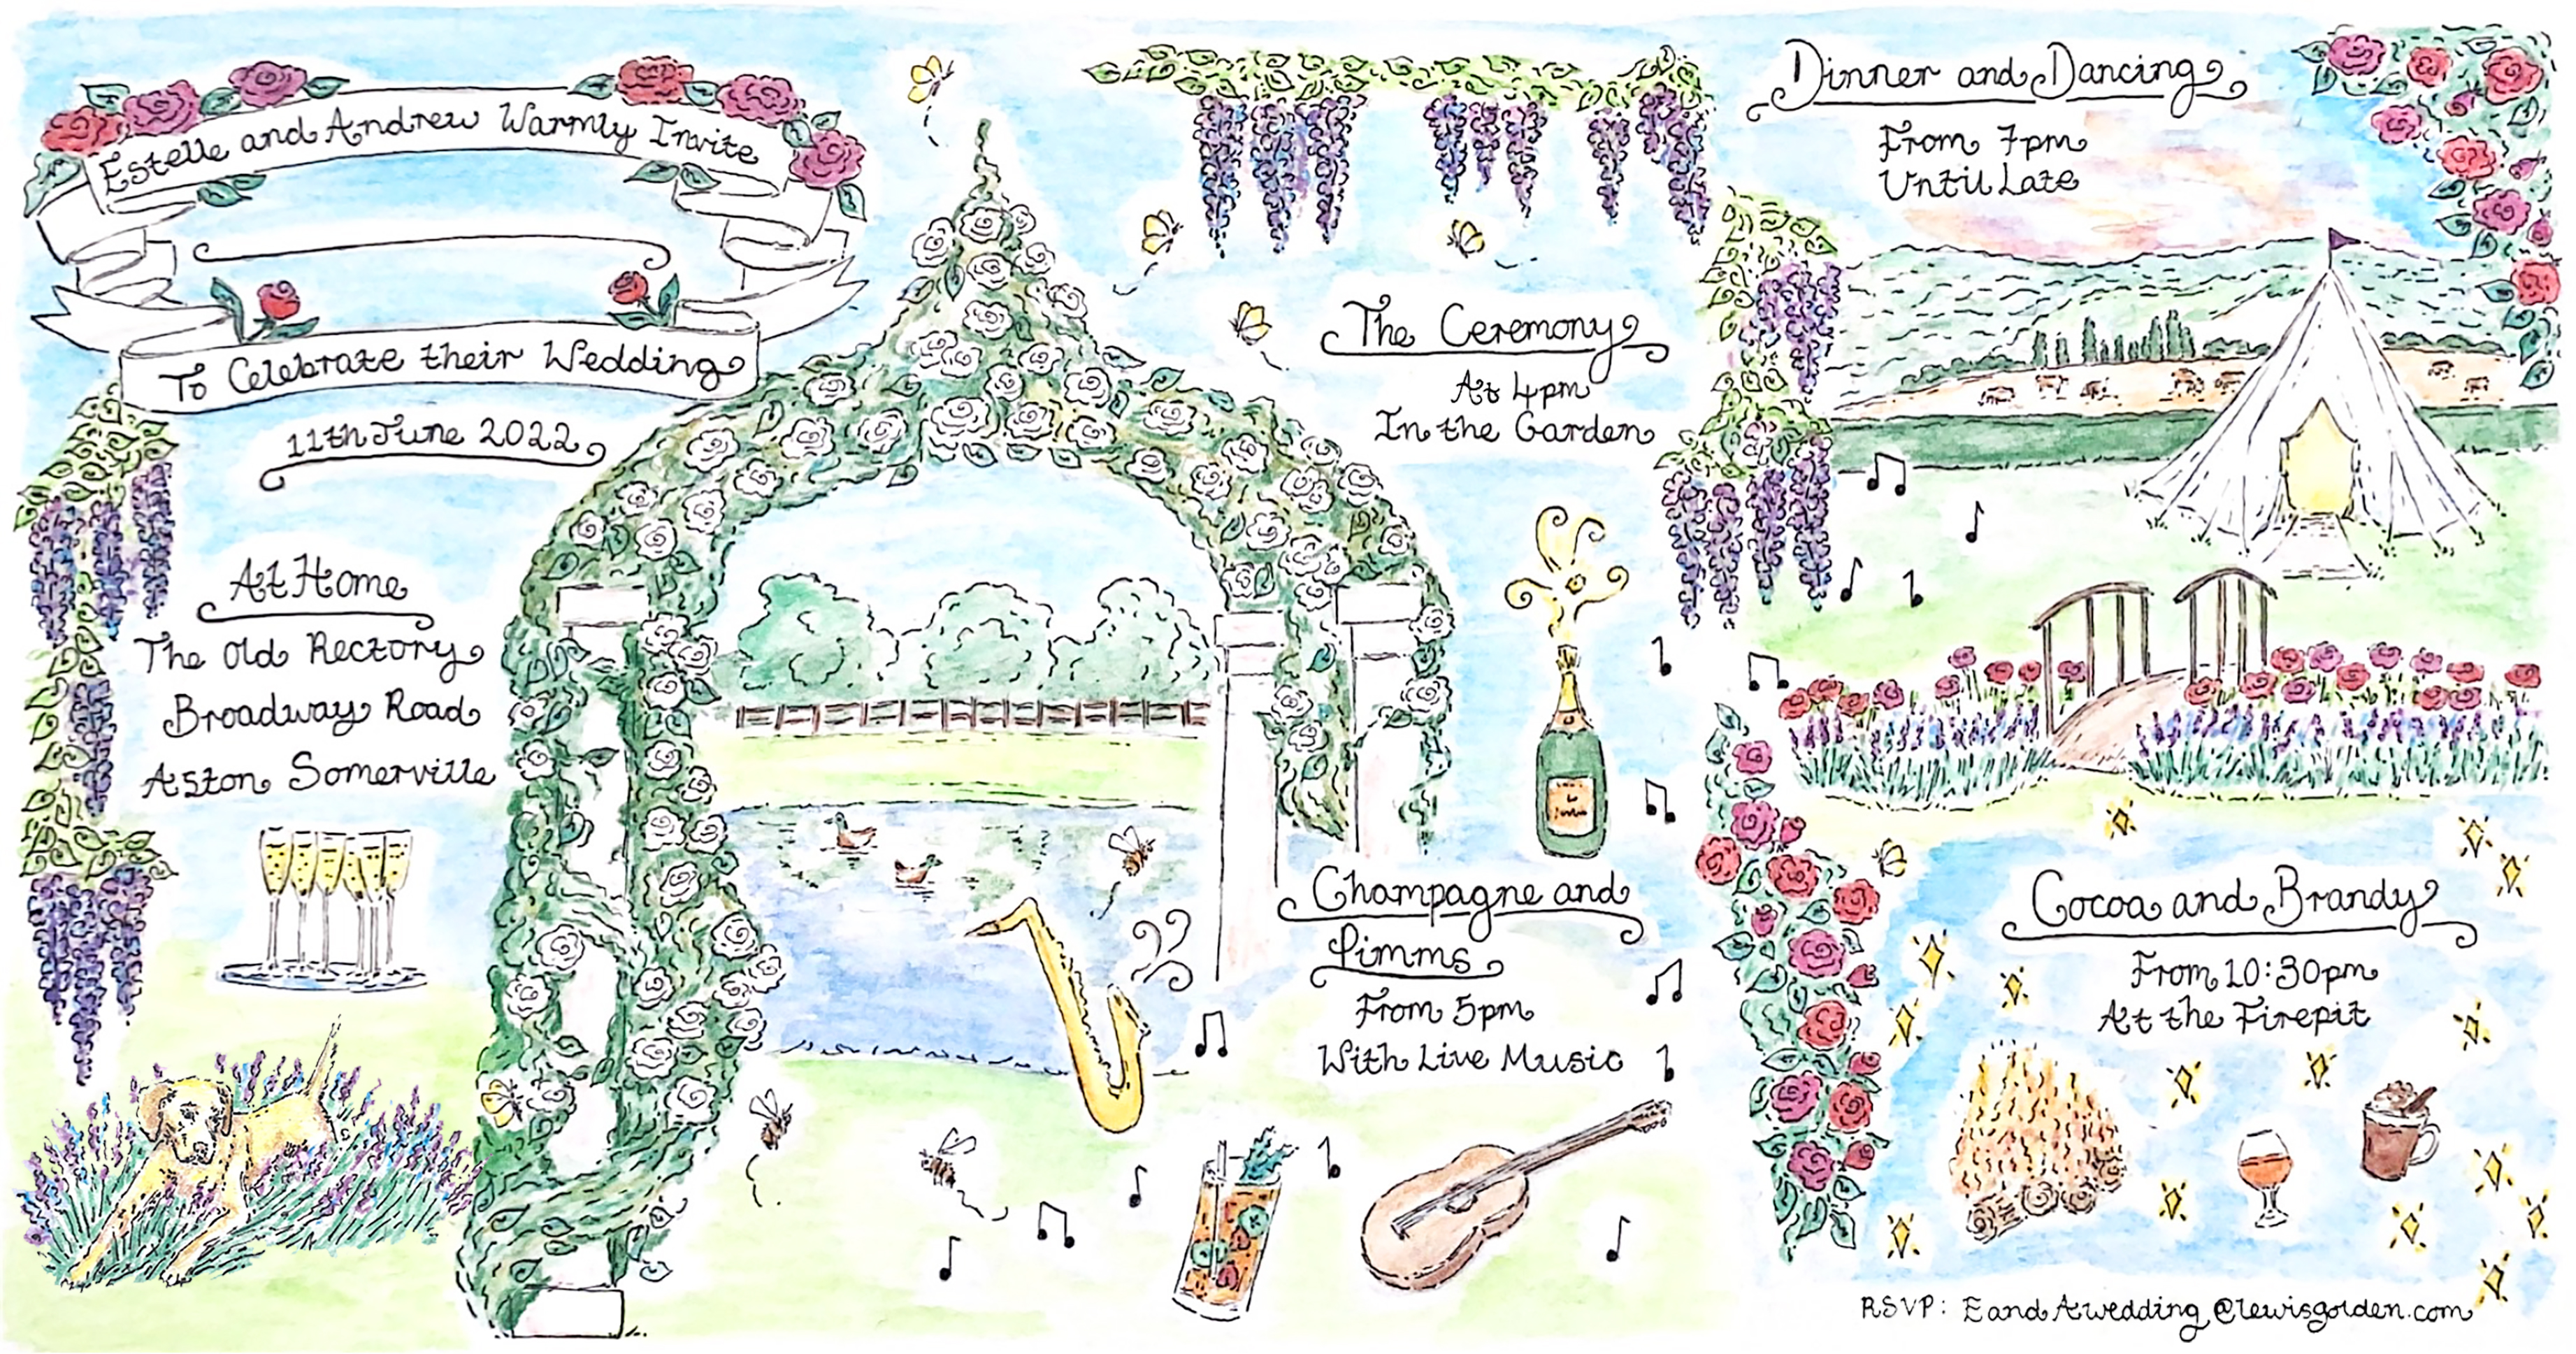 Estelle and Andrew Warmly Invite
To Celebrate their Wedding
11th June 2022
At Home
The Old Rectory
Broadway Road
Aston Somerville
The Ceremony
At 4pm
In the Garden
Champagne and
Pimms
From 5pm
With Live Music
Dinner and Dancing
From 7pm
Until Late
Cocoa and Brandy
From 10:30pm
At the Firepit
RSVP: EandAwedding@lewisgolden.com